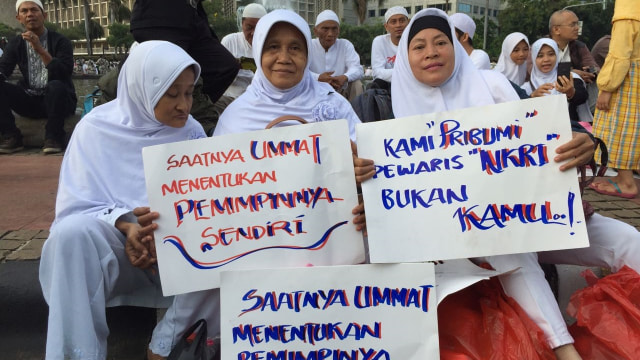 SAATNYA UMMAT
MENENTUKAN
PEMIMPINNYA
SENDIRI
KAMI "PRIBUMI"
PEWARIS "NKRI"
BUKAN
KAMU...!
SAATNYA UMMAT
MENENTUKAN
PEMIMPINNYA